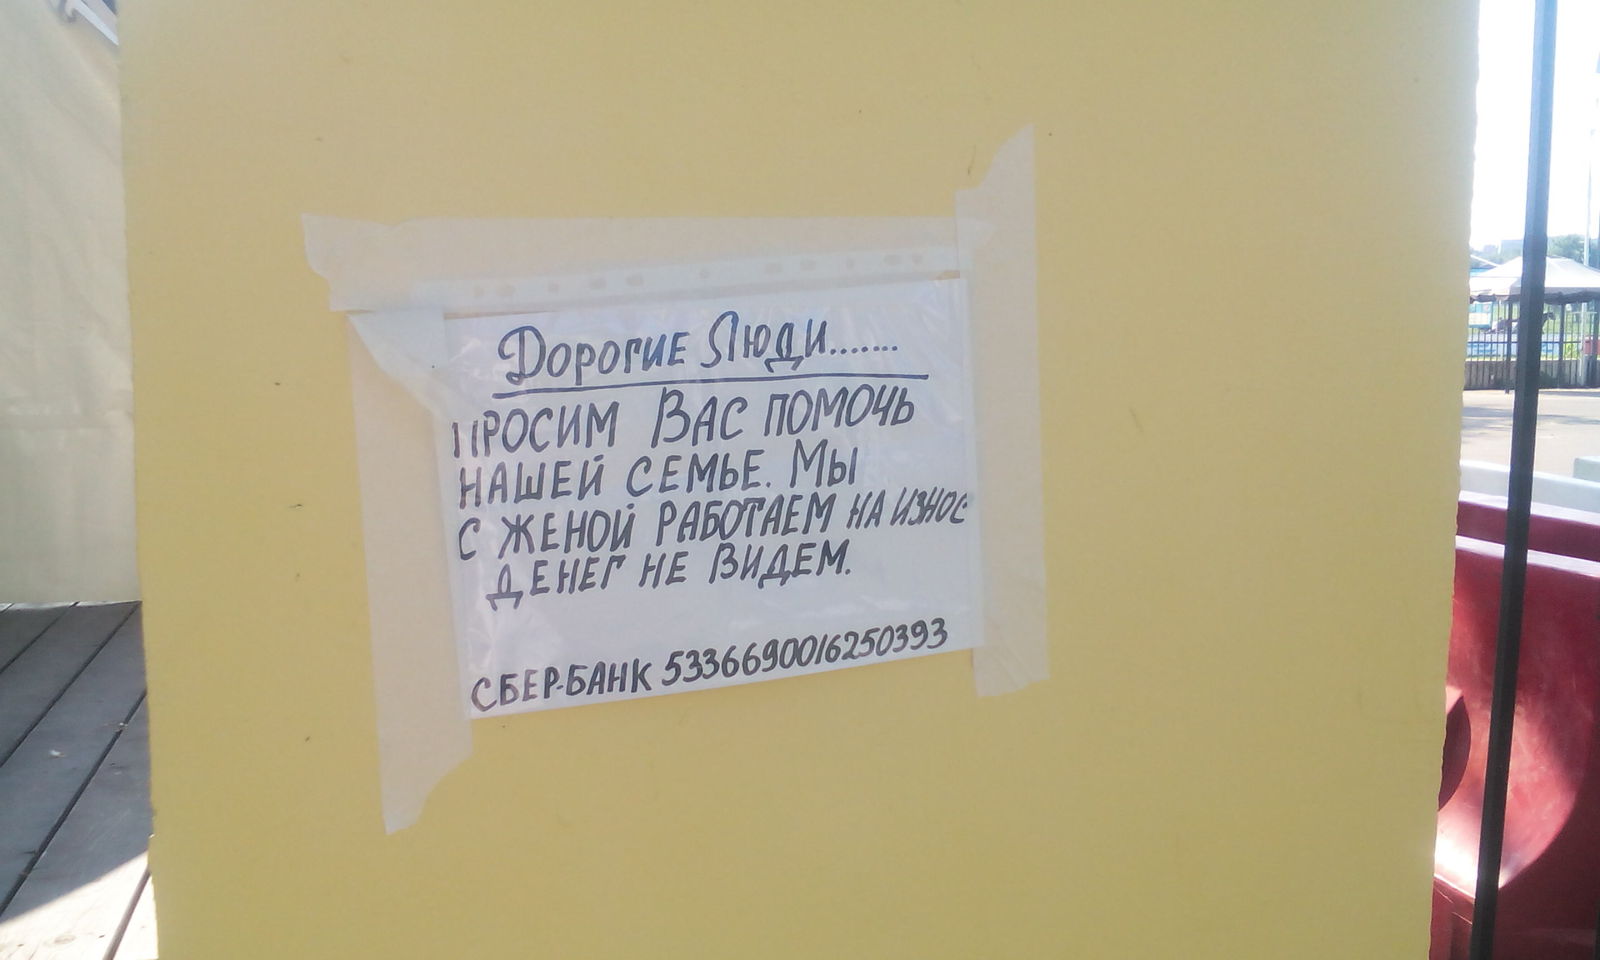 Дорогие Люди.......
ПРОСИМ ВАС ПОМОЧЬ
НАШЕЙ СЕМЬЕ. МЫ
С ЖЕНОЙ РАБОТАЕМ НА ИЗНОС
ДЕНЕГ НЕ ВИДЕМ.
СБЕР-БАНК 5336690016250393